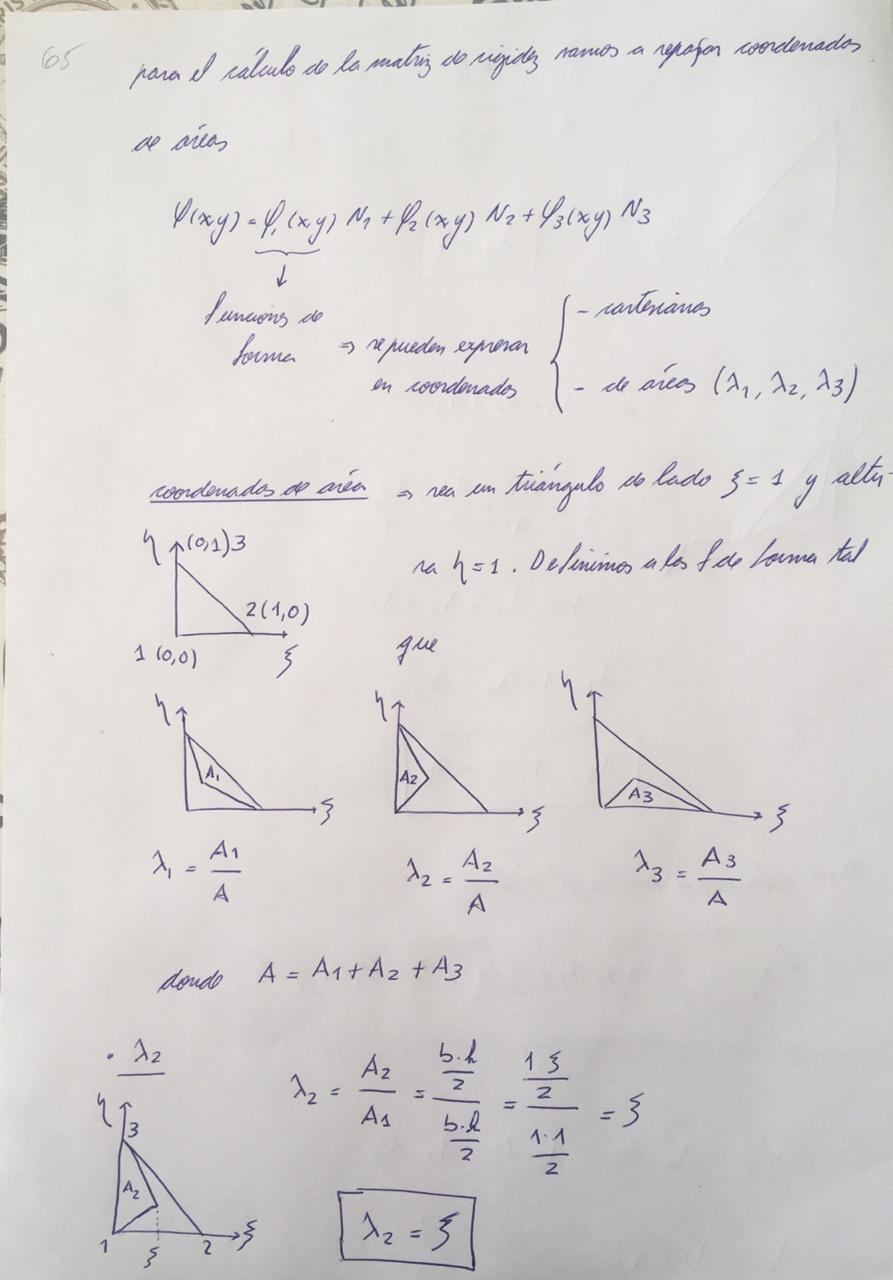 65
para el cálculo de la matriz de rigidez vamos a repasar coordenadas
de áreas
φ(x,y) = φ₁(x,y) N₁ + φ₂(x,y) N₂ + φ₃(x,y) N₃
↓
funciones de
forma ⇒ se pueden expresar
en coordenadas
- cartesianas
- de áreas (λ₁, λ₂, λ₃)
coordenadas de área ⇒ sea un triángulo de lado ξ = 1 y altu-
ra η = 1. Definimos a las f de forma tal
que
η (0,1) 3
2 (1,0)
1 (0,0) ξ
η A₁ ξ
η A₂ ξ
η A₃ ξ
λ₁ = A₁/A
λ₂ = A₂/A
λ₃ = A₃/A
donde A = A₁ + A₂ + A₃
• λ₂
λ₂ = A₂/A₁ = (b·h/2)/(b·h/2) = (1 ξ/2)/(1·1/2) = ξ
η 3
A₂
1 ξ 2 ξ
λ₂ = ξ